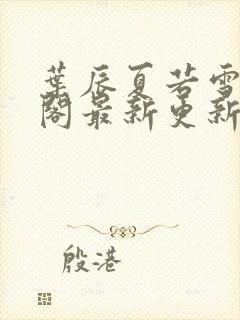 葉辰夏若雪
閣最新更新
殷港